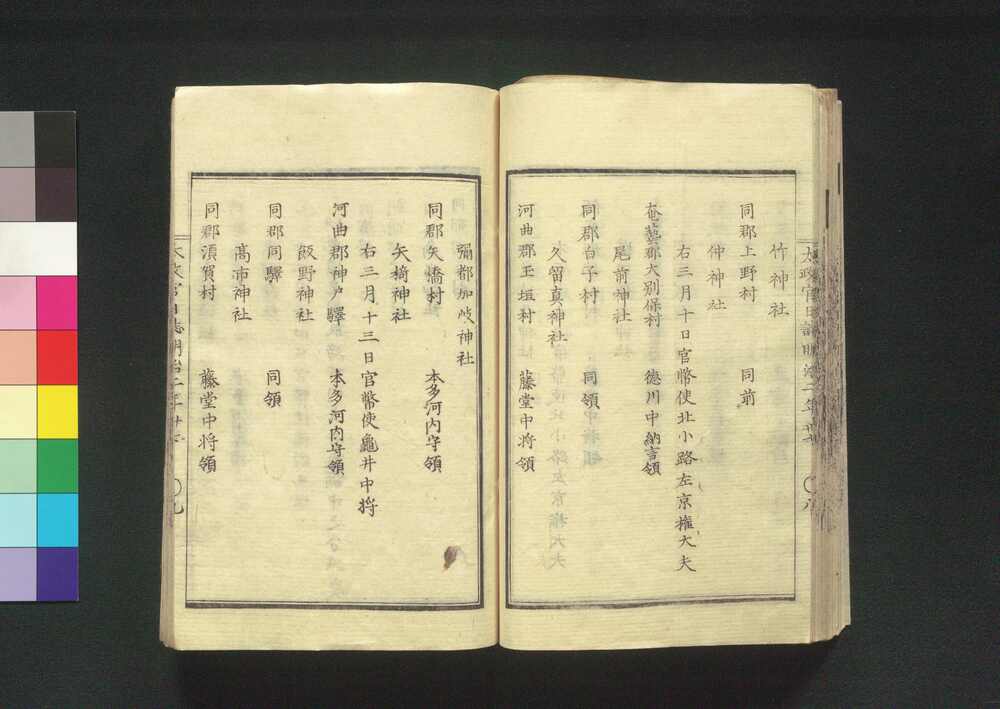 竹神社
同郡上野村 同前
仲神社
右三月十日官幣使北小路左京權大夫
奄藝郡大別保村 德川中納言領
尾前神社
同郡白子村 同領
久留真神社
河曲郡玉垣村 藤堂中将領
彌都加岐神社
同郡矢橋村 本多河内守領
矢椅神社
右三月十三日官幣使龜井中将
河曲郡神戸驛 本多河内守領
飯野神社
同郡同驛 同領
髙市神社
同郡須賀村 藤堂中将領
太政官日誌明治二年
〇八
太政官日誌明治二年
〇九